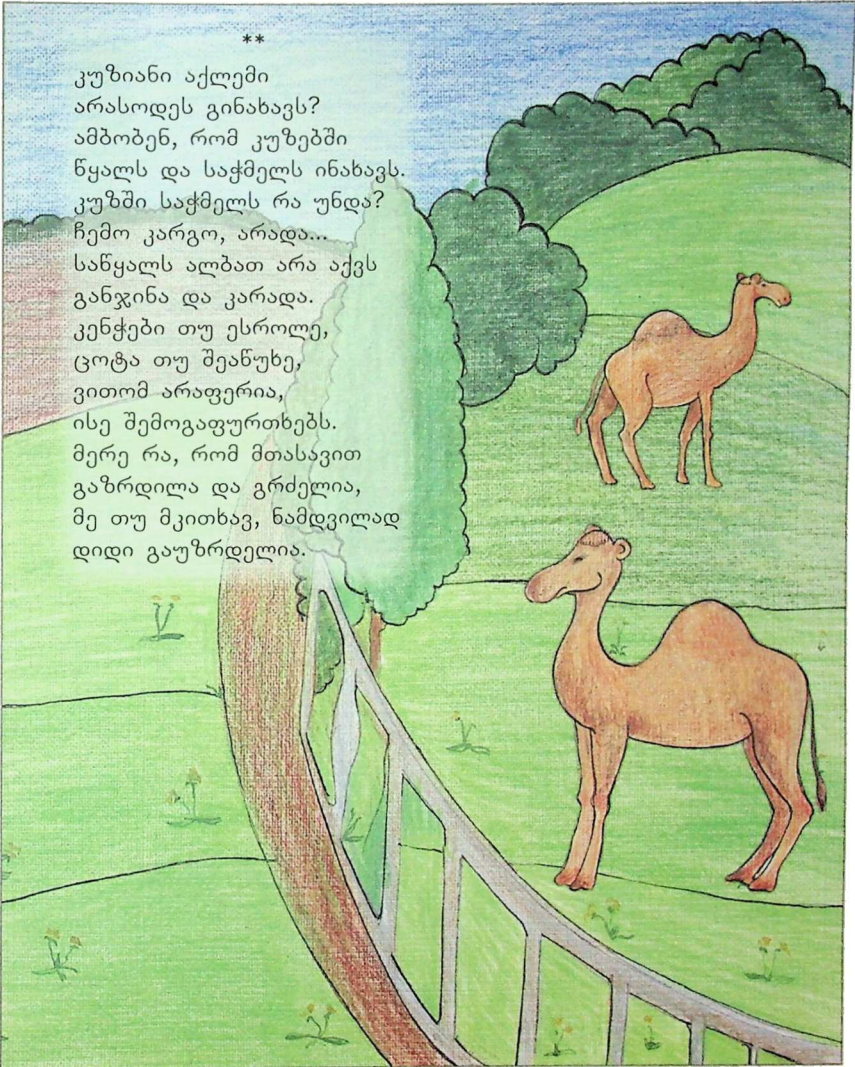 **
კუზიანი აქლემი
არასოდეს გინახავს?
ამბობენ, რომ კუზებში
წყალს და საჭმელს ინახავს.
კუზში საჭმელს რა უნდა?
ჩემო კარგო, არადა...
საწყალს ალბათ არა აქვს
განჯინა და კარადა.
კენჭები თუ ესროლე,
ცოტა თუ შეაწუხე,
ვითომ არაფერია,
ისე შემოგაფურთხებს.
მერე რა, რომ მთასავით
გაზრდილა და გრძელია,
მე თუ მკითხავ, ნამდვილად
დიდი გაუზრდელია.